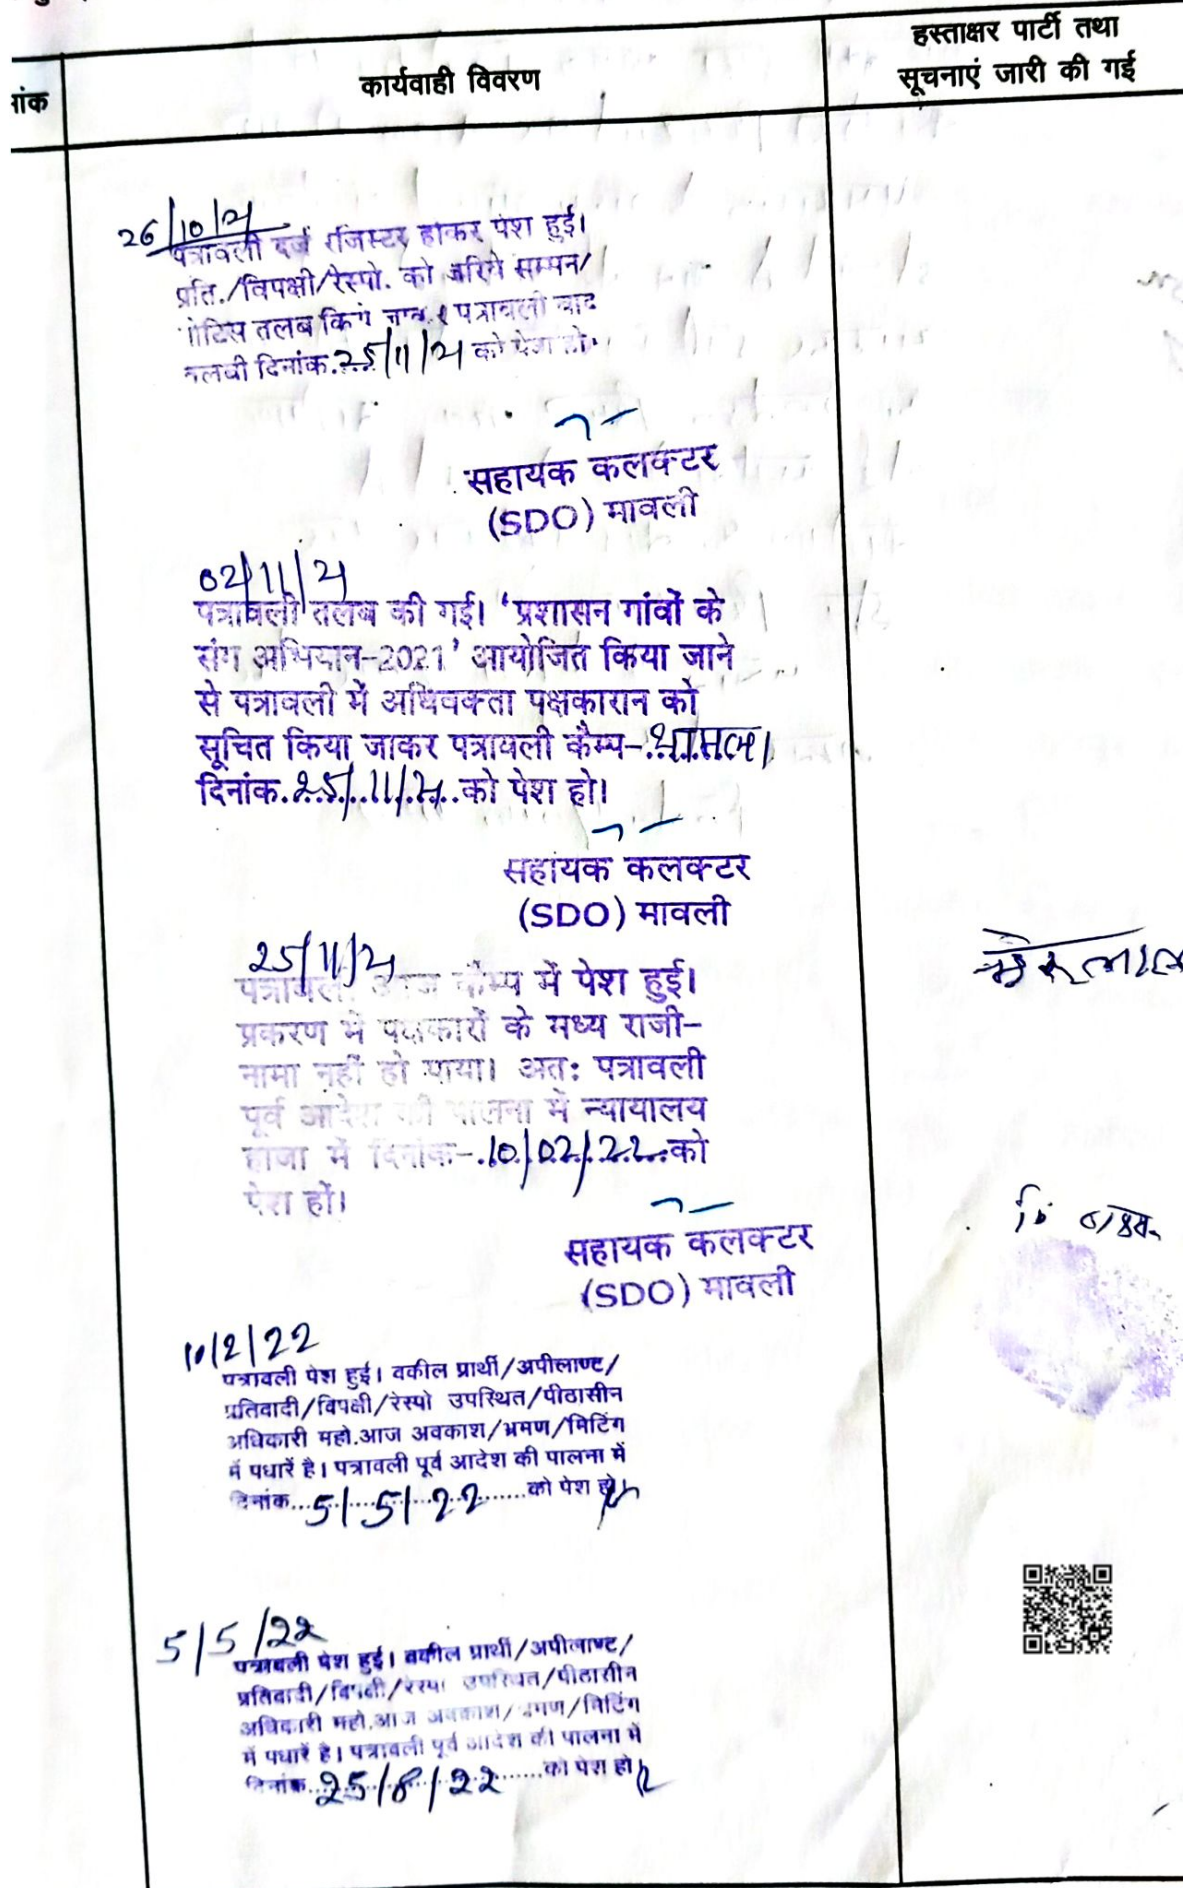 हस्ताक्षर पार्टी तथा
सूचनाएं जारी की गई
कार्यवाही विवरण
नांक
26/10/21
पत्रावली दर्ज रजिस्टर होकर पेश हुई।
प्रति./विपक्षी/रेस्पो. को जरिये सम्मन/
नोटिस तलब किये जावे। पत्रावली बाद
तलबी दिनांक.25/11/21 को पेश हो।
सहायक कलक्टर
(SDO) मावली
02/11/21
पत्रावली तलब की गई। 'प्रशासन गांवों के
संग अभियान-2021' आयोजित किया जाने
से पत्रावली में अधिवक्ता पक्षकारान को
सूचित किया जाकर पत्रावली कैम्प-
दिनांक.25/11/21.को पेश हो।
सहायक कलक्टर
(SDO) मावली
25/11/21
पत्रावली आज कैम्प में पेश हुई।
प्रकरण में पक्षकारों के मध्य राजी-
नामा नहीं हो पाया। अतः पत्रावली
पूर्व आदेश की पालना में न्यायालय
हाजा में दिनांक-.10/02/22.को
पेश हों।
सहायक कलक्टर
(SDO) मावली
10/2/22
पत्रावली पेश हुई। वकील प्रार्थी/अपीलाण्ट/
प्रतिवादी/विपक्षी/रेस्पो उपस्थित/पीठासीन
अधिकारी महो.आज अवकाश/भ्रमण/मिटिंग
में पधारें है। पत्रावली पूर्व आदेश की पालना में
दिनांक...5/5/22......को पेश हो।
5/5/22
पत्रावली पेश हुई। वकील प्रार्थी/अपीलाण्ट/
प्रतिवादी/विपक्षी/रेस्पो उपस्थित/पीठासीन
अधिकारी महो.आज अवकाश/भ्रमण/मिटिंग
में पधारें है। पत्रावली पूर्व आदेश की पालना में
दिनांक...25/8/22......को पेश हो।